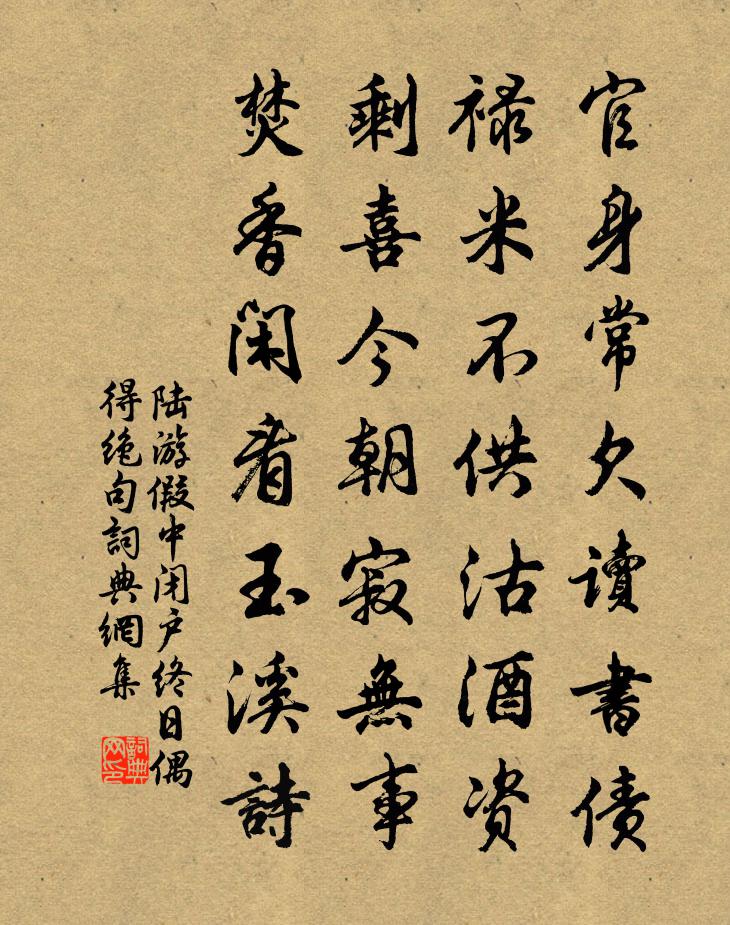 官身常欠讀書債
禄米不供沽酒资
剩喜今朝寂無事
焚香閑看玉溪詩
陆游假中闭户终日偶
得绝句詞典網集
詞典
网印